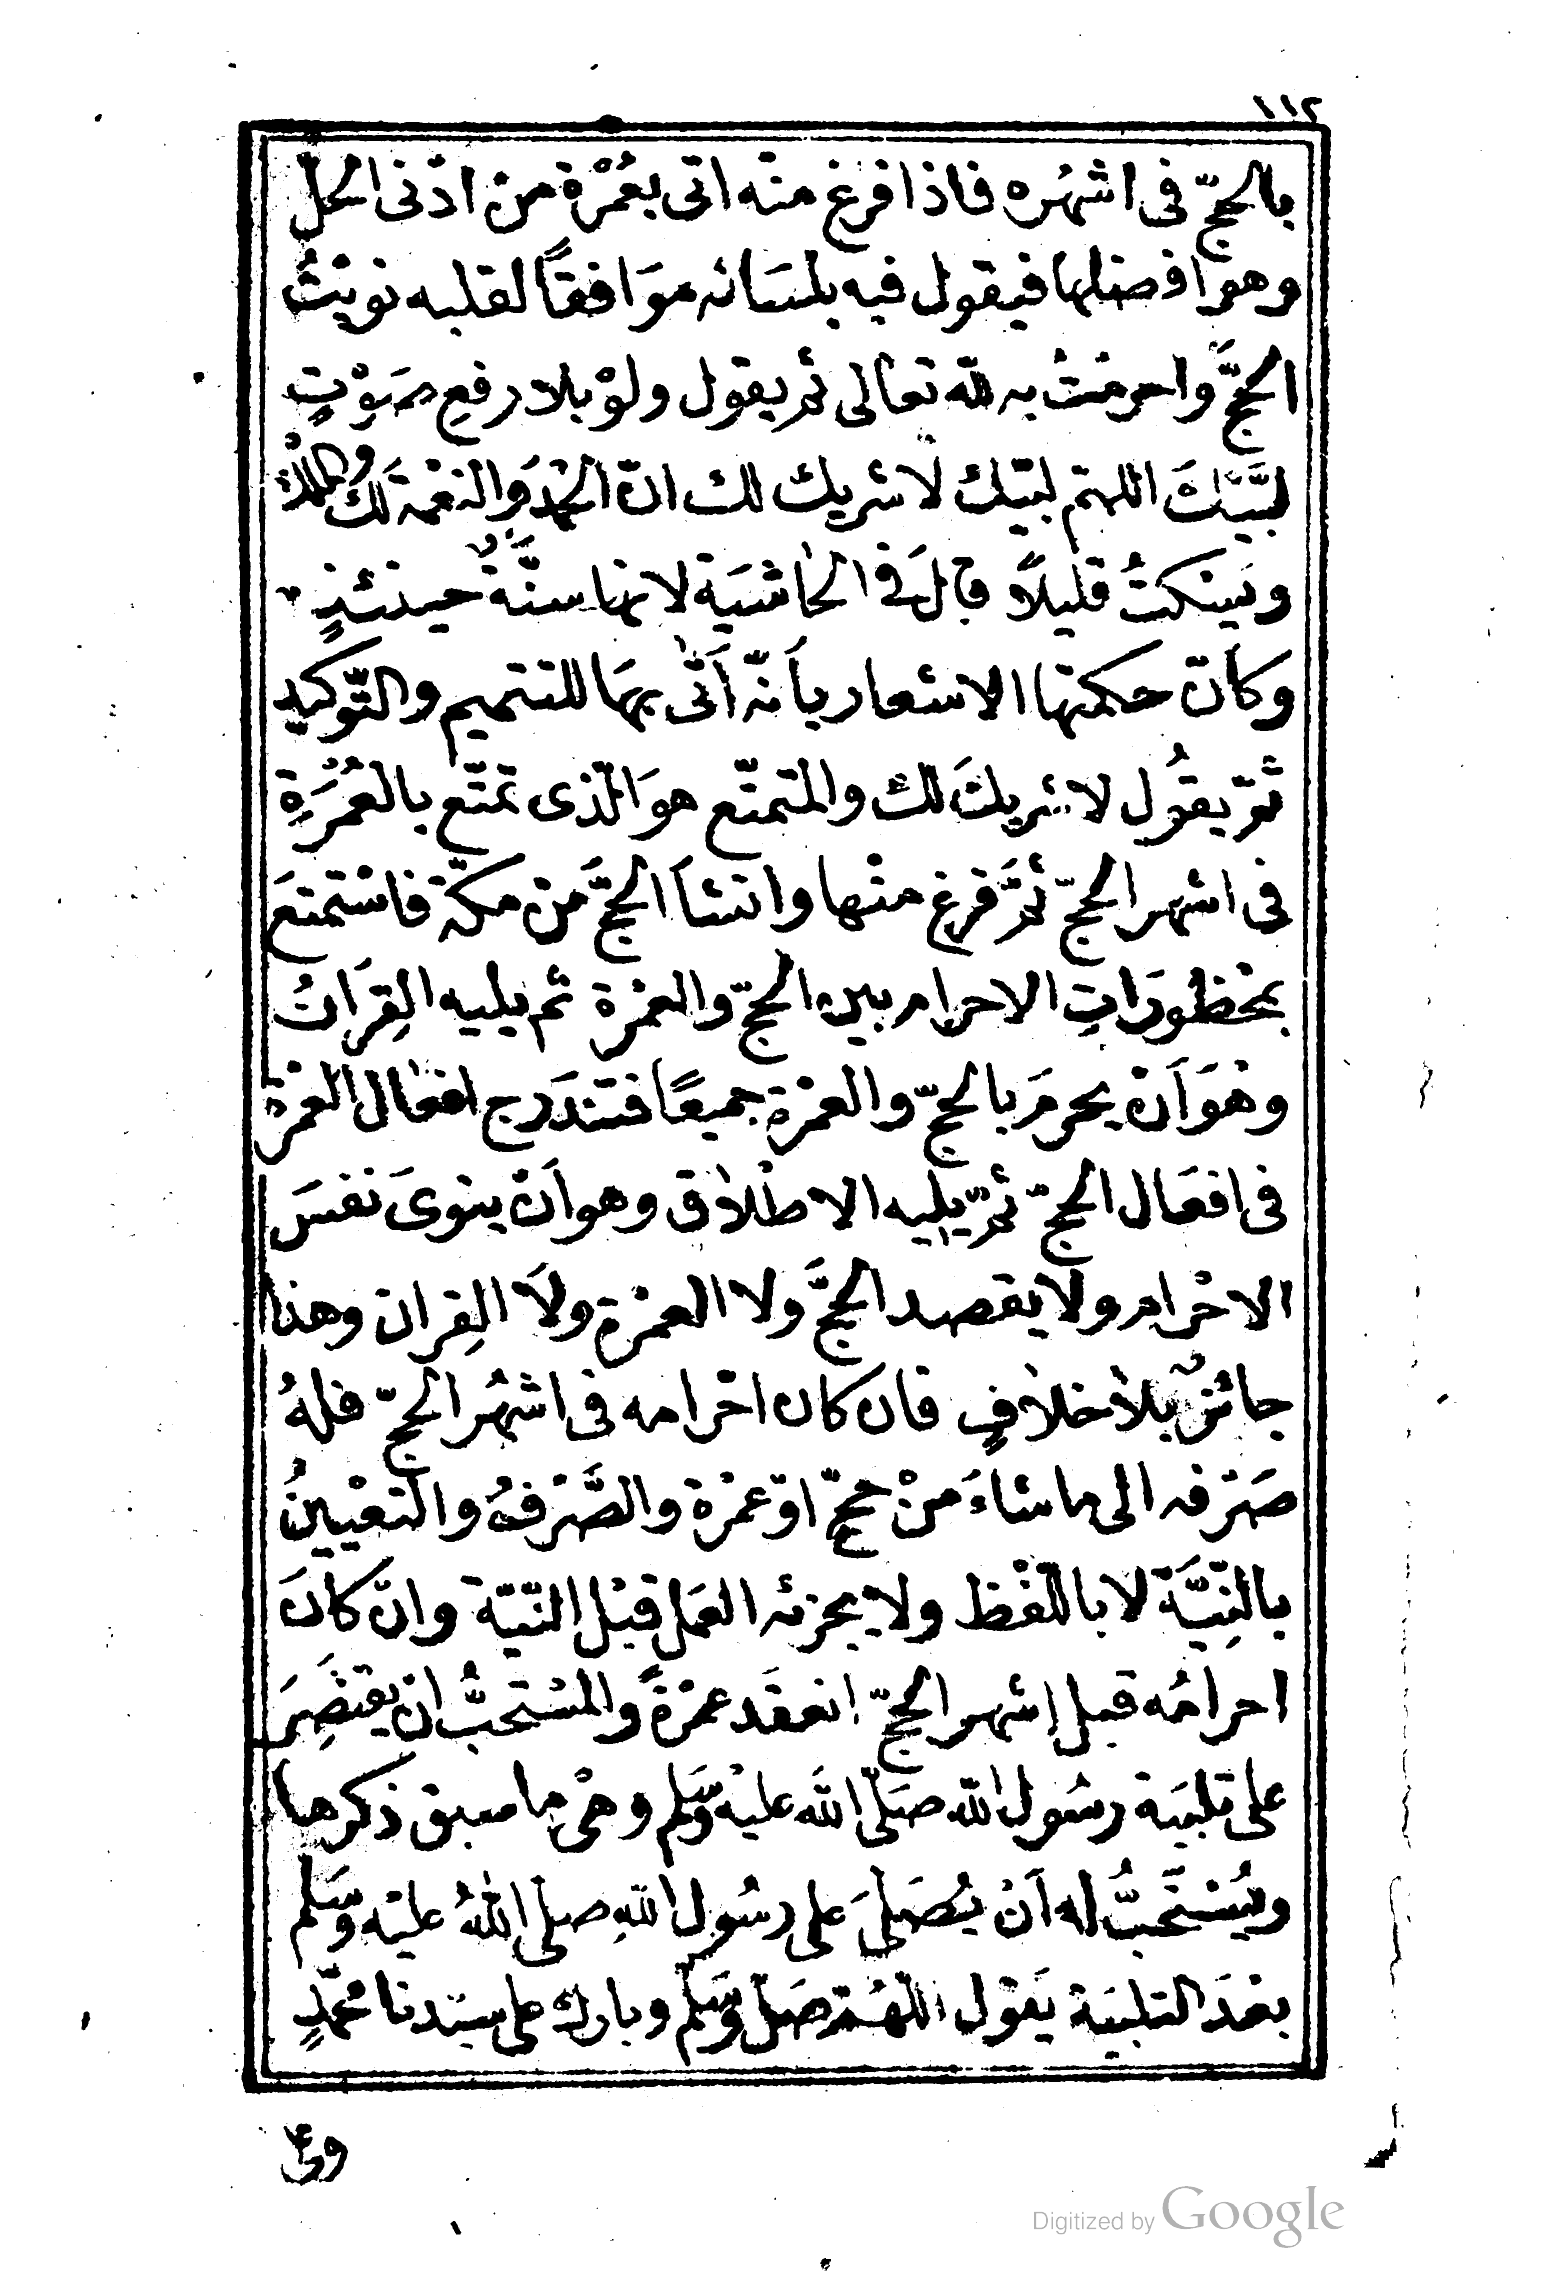 ١١٢
بالحجّ فى اشهُره فاذا فرغ منه اتى بعُمْرَة من ادْنى الحلّ
وهوَ افضلها فيقول فيه بلسَانه موَافقًا لقلبه نويْتُ
الحجَّ واحرمْتُ به للّه تعالى ثم يقول ولوْ بلا رفعِ صَوْتٍ
لبَّيْكَ اللهمّ لبّيْك لا شريك لك انّ الحمْدَ والنعْمَة لَك وَالملْك
ويَسْكتُ قليلاً قالَ فى الحاشيَة لانها سنَّةٌ حينئذٍ
وكأنّ حكمتها الاشعار بأَنّه أَتٰى بهَا للتتميم والتّوكيد
ثمّ يقُول لا شريكَ لك والمتمتّع هوَ الّذى تمتّع بالعُمْرَةِ
فى اشهر الحجّ ثمَّ فرغ منْها وانشأَ الحجَّ منْ مكّة فاسْتمتعَ
بمحْظورَاتِ الاحرام بين الحجّ والعمْرة ثم يليه القِرَانُ
وهْوَ اَنْ يحرمَ بالحجّ والعمْرة جميعًا فتندَرج افعَال العمْرة
فى افعَال الحجّ ثمّ يليه الاطْلاق وهو اَنْ ينوىَ نفسَ
الاحْرام ولا يقصد الحجَّ ولا العمْرة ولَا القِران وهذا
جائزٌ بلا خلافٍ فان كان احْرامه فى اشهُر الحجّ فلهُ
صَرْفه الى ما شاءَ منْ حجّ اوْ عمْرة والصَّرْفُ والتعْيينُ
بالنِّيَّة لا باللّفْظ ولا يجزئه العمَل قبْل النّيّة وانْ كانَ
احرامُه قبل اشهر الحجّ انعقَد عمْرَةً والمسْتحبُّ ان يقتَصِرَ
على تلبيَة رسُول اللّه صَلّى اللّه عليْه وَسَلم وهْى ما سبق ذكرها
ويُسْتحَبُّ له اَنْ يُصَلىَ على رسُول اللّهِ صلى اللّٰهُ عليْه وَسَلم
بعْدَ التلبيَة يَقول اللّهُمّ صَلّ وَسَلّم وبارك على سيّدنا محمّدٍ
وعلى